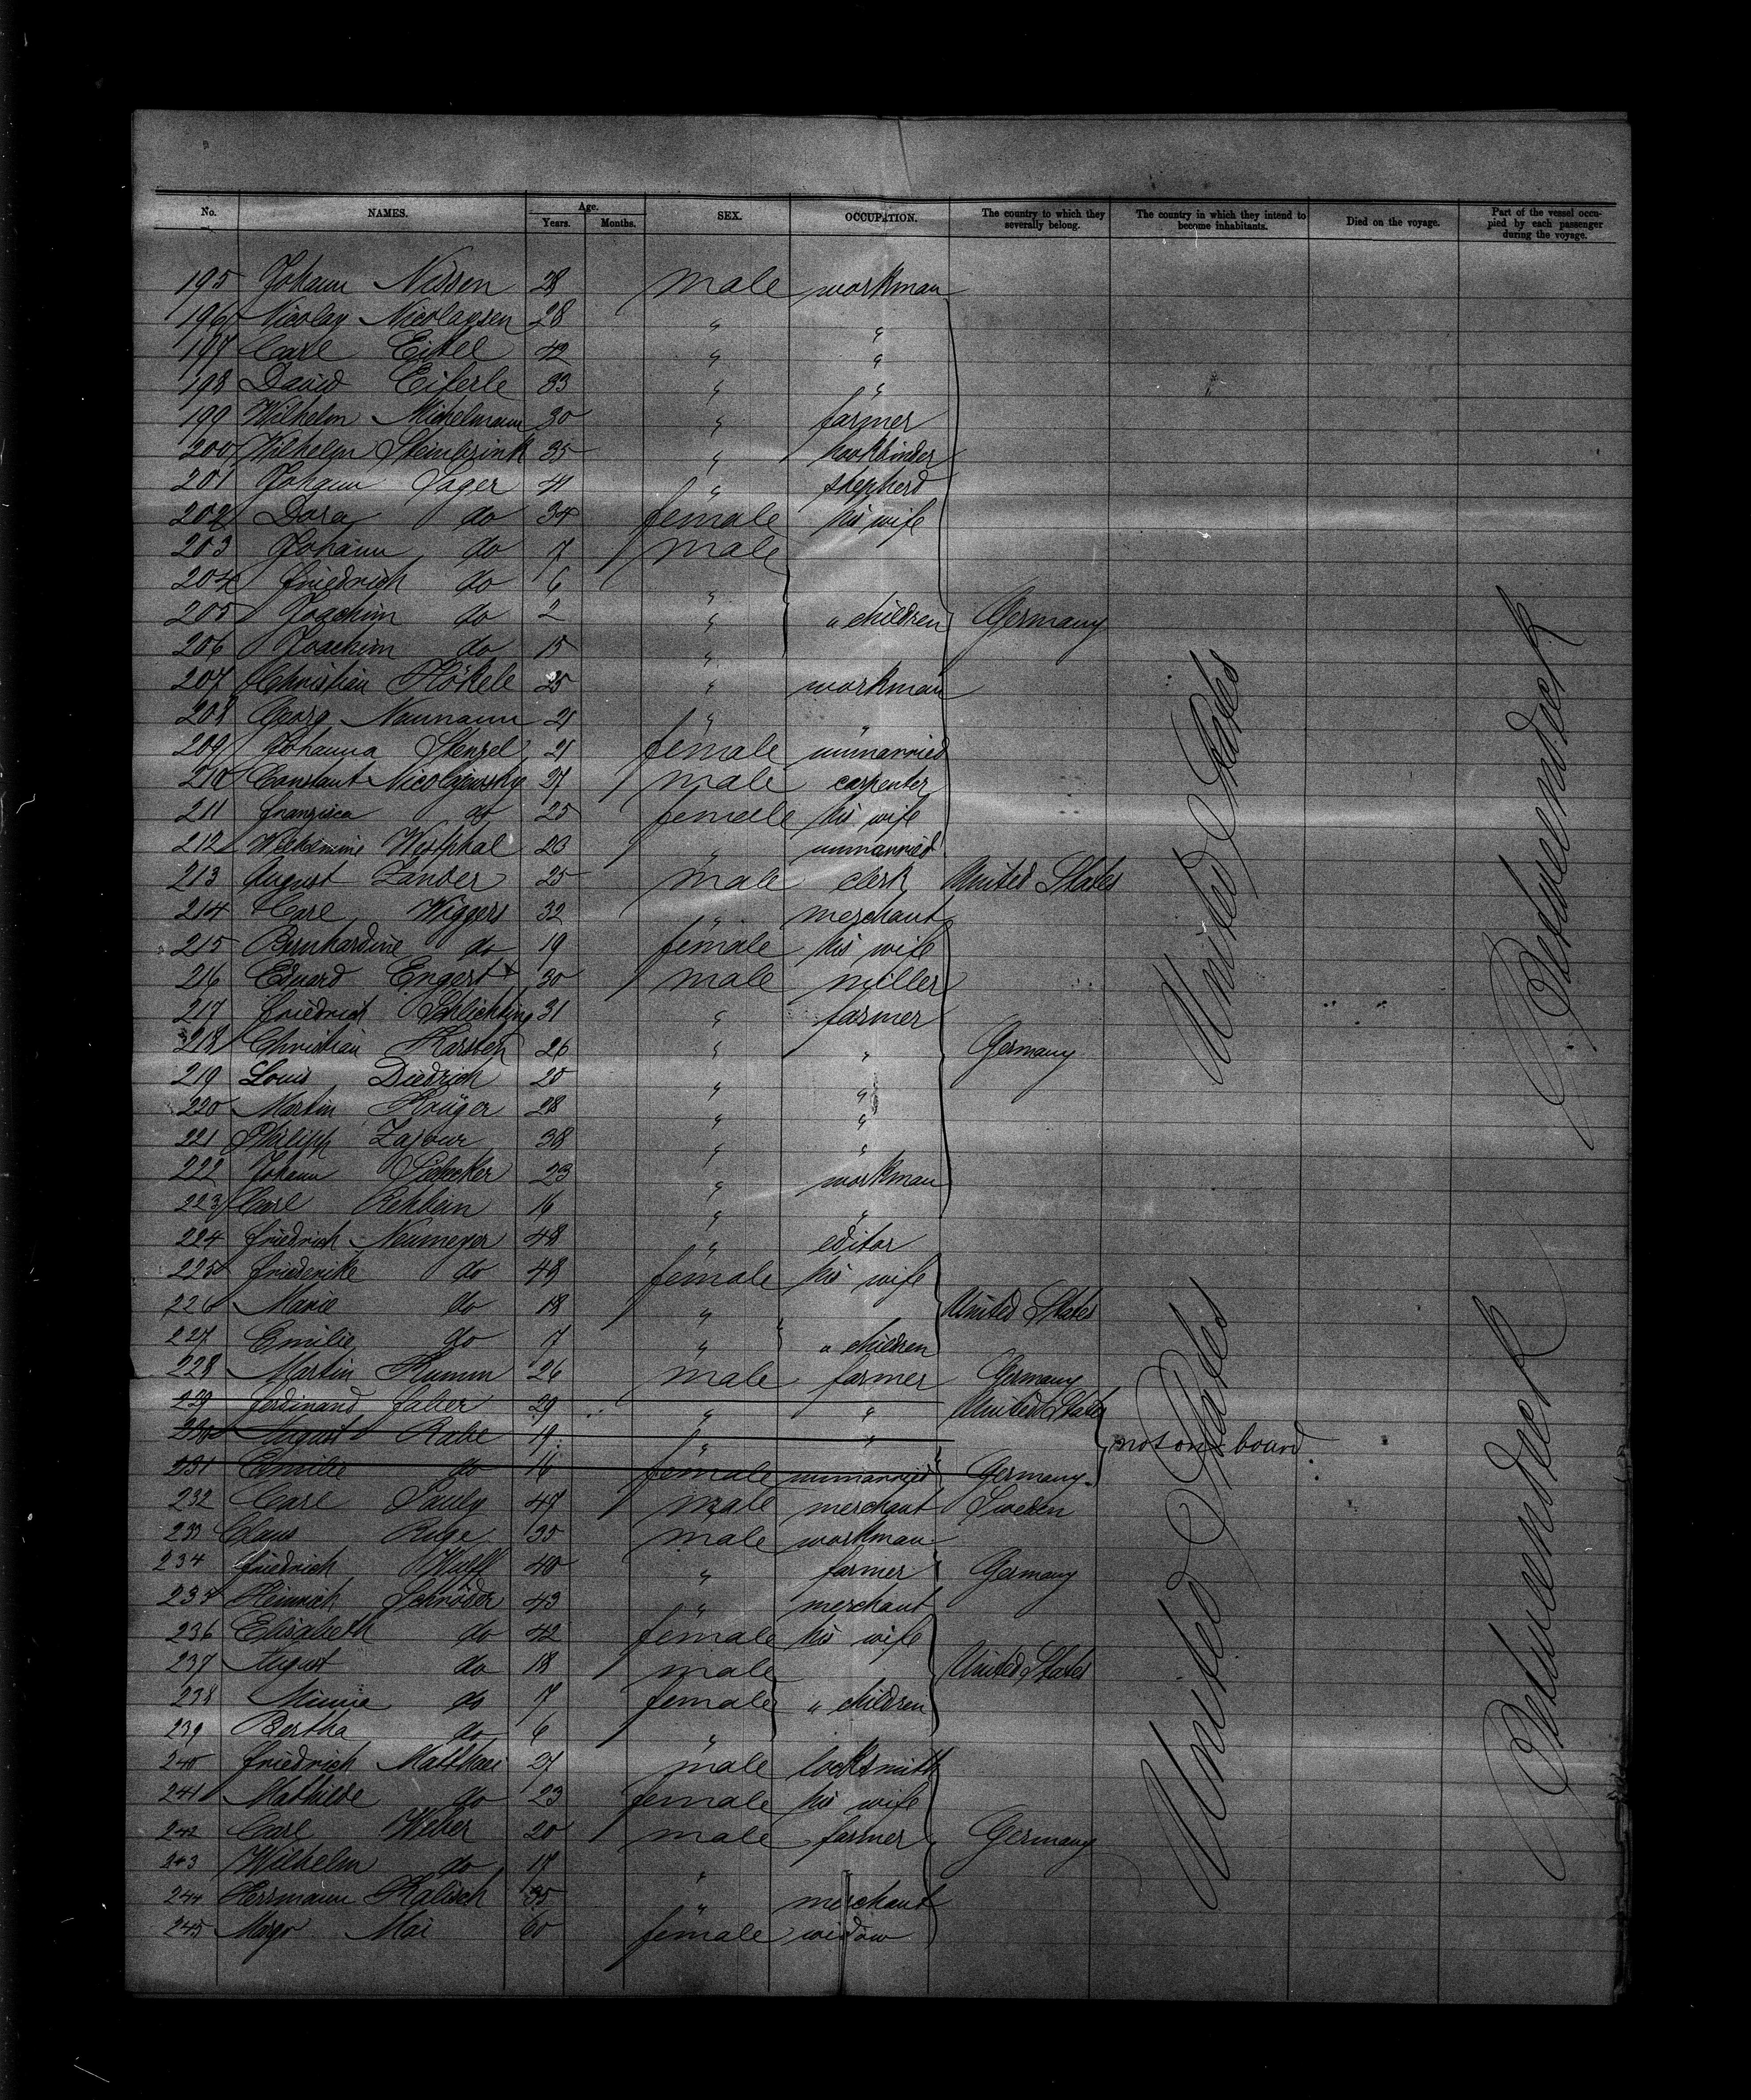 No. NAMES. Age. Years. Months. SEX. OCCUPATION. The country to which they severally belong. The country in which they intend to become inhabitants. Died on the voyage. Part of the vessel occupied by each passenger during the voyage.
195 Johann Nissen 28 male workman
196 Nicolay Nicolaysen 28 " "
197 Carl Eitel 42 " "
198 David Eiferle 33 " "
199 Wilhelm Michelmann 30 " farmer
200 Wilhelm Steinbrink 35 " bookbinder
201 Johann Jager 41 " shepherd
202 Dora do 34 female his wife
203 Johann do 7 male
204 Friedrich do 6 "
205 Joachim do 2 " " children Germany
206 Joachim do 15 "
207 Christian Hökele 25 " workman
208 Georg Naumann 21 " "
209 Johanna Stenzel 21 female unmarried
210 Constant Nicolajewsky 27 male carpenter
211 Franzisca do 25 female his wife
212 Wilhelmine Westphal 23 " unmarried
213 August Zander 25 male clerk United States
214 Carl Wiggers 32 " merchant
215 Bernhardine do 19 female his wife
216 Eduard Engert 30 male miller
217 Friedrich Schlichting 31 " farmer
218 Christian Karsten 26 " " Germany
219 Louis Diedrich 25 " "
220 Martin Krüger 28 " "
221 Philipp 38 " "
222 Johann 23 " workman
223 Carl Rehbein 16 " "
224 Friedrich Neumeyer 48 " editor
225 Friederike do 48 female his wife
226 Marie do 18 " United States
227 Emilie do 7 " " children
228 Martin Kumm 26 male farmer Germany
229 Ferdinand Falter 29 " " United States
230 August Rabe 19 " " not on board
231 Emilie do 16 female unmarried Germany
232 Carl Pauly 47 male merchant Sweden
233 Claus Ruge 35 male workman
234 Friedrich Wulff 40 " farmer Germany
235 Heinrich Schröder 43 " merchant
236 Elisabeth do 42 female his wife
237 August do 18 male United States
238 Minna do 7 female " children
239 Bertha do 6 "
240 Friedrich Matthaei 27 male locksmith
241 Mathilde do 23 female his wife
242 Carl Weber 20 male farmer Germany
243 Wilhelm do 17 "
244 Herrmann Kalisch 35 " merchant
245 Mai 60 female widow
United States
United States
Betweendeck
Betweendeck